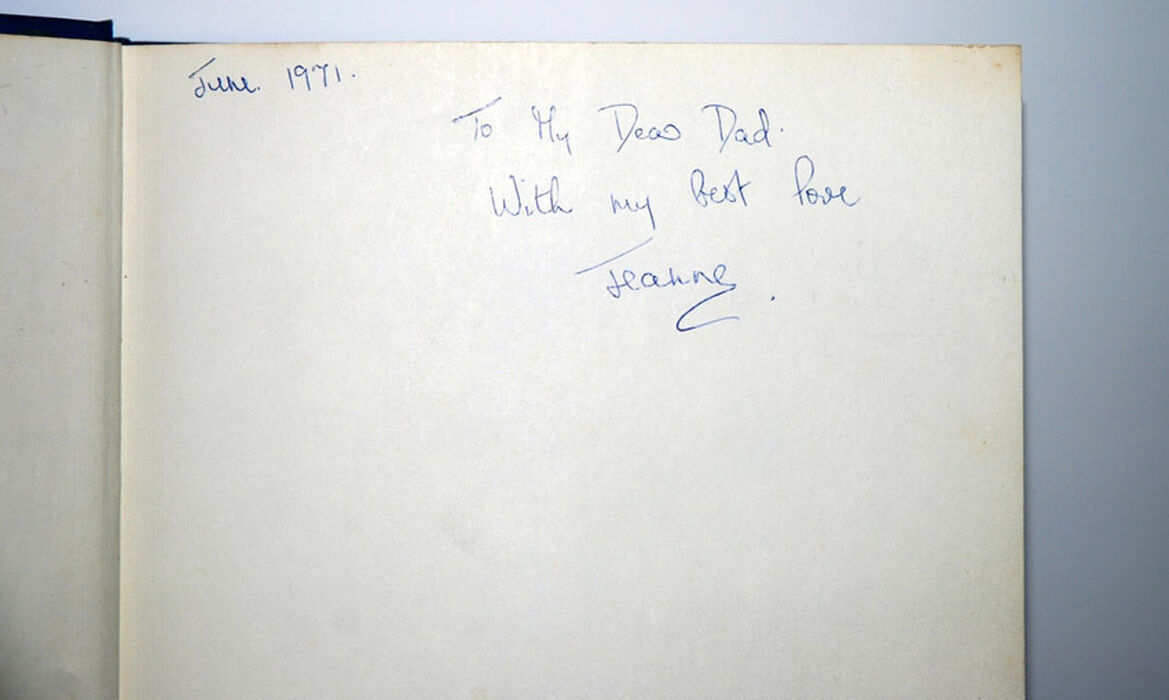 June. 1971.
To My Dear Dad.
With my best love
Jeanne.